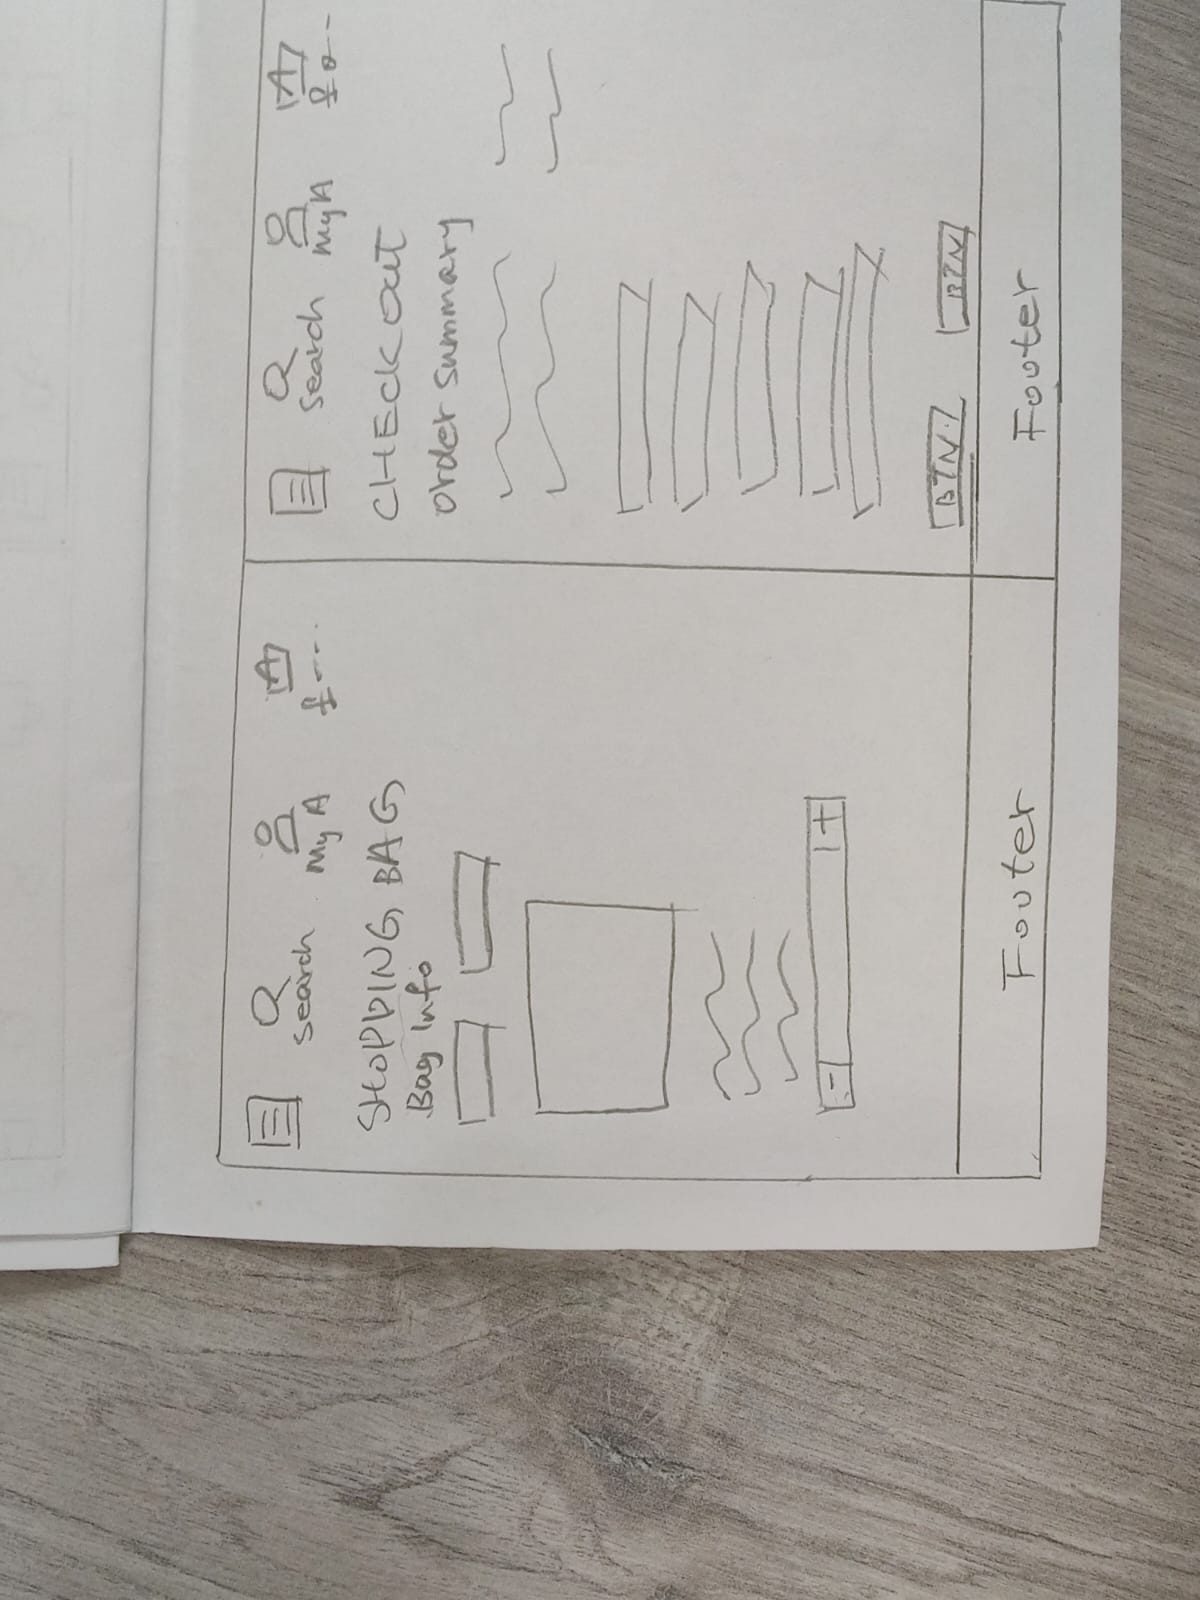 Search
My A
£---.
SHOPPING BAG
Bag Info
-
+
Footer
Search
My A
£0--
CHECKOUT
Order summary
BTN
BTN
Footer